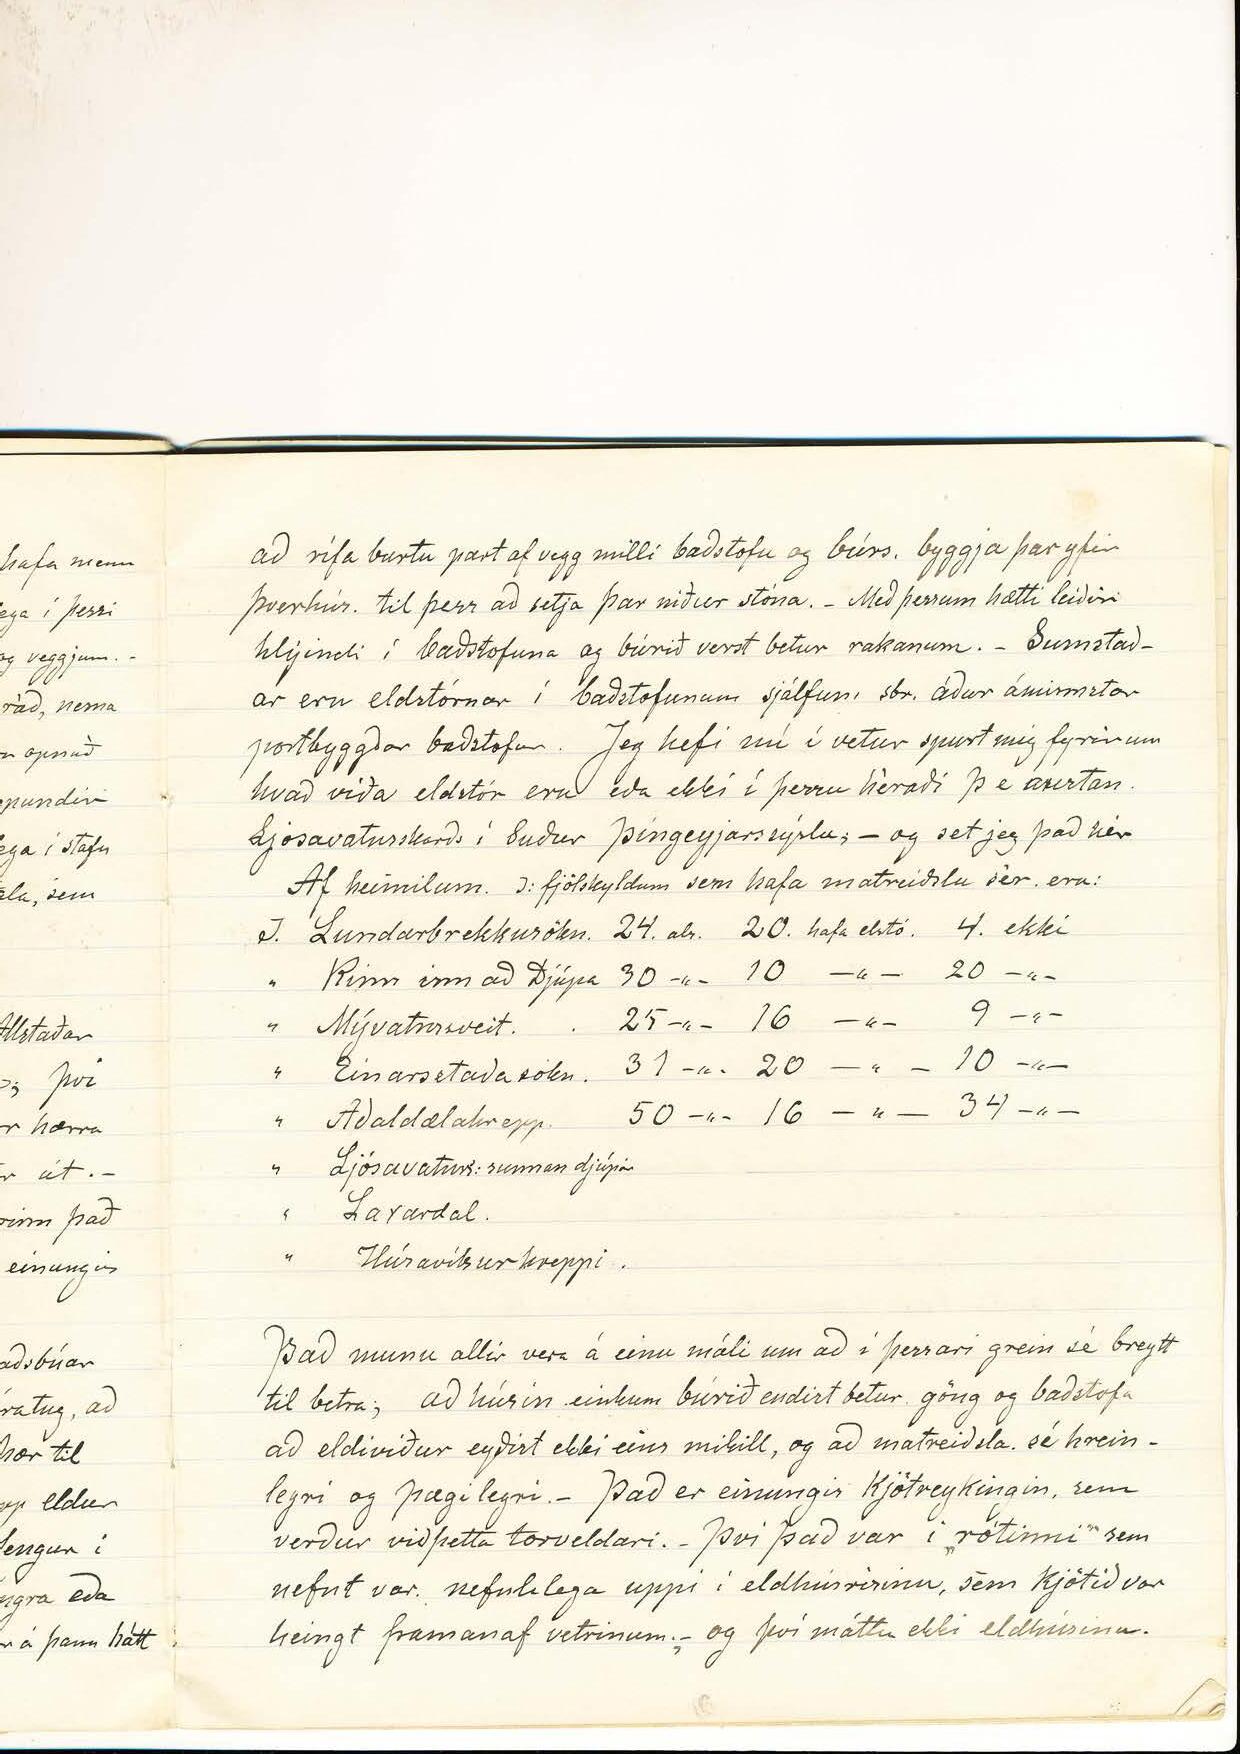 hafa menn
ega í þessi
og veggjum. -
ráð, nema
opnað
ega í stafn
ela, sem
Allstaðar
; því
r hærra
r út. -
rinn það
einungis
aðsbúar
ratug, að
hær til
pp eldur
lengur í
ngra eða
r á þann hátt
að rífa burtu part af vegg milli baðstofu og búrs. byggja þar yfir
þverhús. til þess að setja þar niður stóna. - Með þessum hætti leiðir
hlýindi í baðstofuna og búrið verst betur rakanum. - Sumstað-
ar eru eldstórnar í baðstofunum sjálfum sbr. áður ámimstar
portbyggðar baðstofur. Jeg hefi nú í vetur spurt mig fyrir um
hvað víða eldstór eru eða ekki í þessu héraði þ e austan.
Ljósavatnsskarðs í Suður Þingeyjarsýslu; - og set jeg það hér
Af heimilum. ɔ: fjölskyldum sem hafa matreiðslu sér. eru:
I. Lundarbrekkusókn. 24. als. 20. hafa elstó. 4. ekki
„ Kinn inn að Djúpá 30 -„- 10 -„- 20 -„-
„ Mývatnssveit. . 25 -„- 16 -„- 9 -„-
„ Einarsstaðasókn. 31 -„- 20 -„- 10 -„-
„ Aðaldælahrepp. 50 -„- 16 -„- 34 -„-
„ Ljósavatns: sunnan djúpár
„ Laxárdal.
„ Húsavíkurhreppi.
Það munu allir vera á einu máli um að í þessari grein sé breytt
til betra; að húsin einkum búrið endist betur göng og baðstofa
að eldiviður eyðist ekki eins mikill, og að matreiðsla. sé hrein-
legri og þægilegri. - Það er einungis Kjötreykingin, sem
verður við þetta torveldari. - Því það var í „rótinni" sem
nefnt var. nefnilega uppi í eldhúsrisinu, sem Kjötið var
heingt framanaf vetrinum; - og því máttu ekki eldhúsinu.